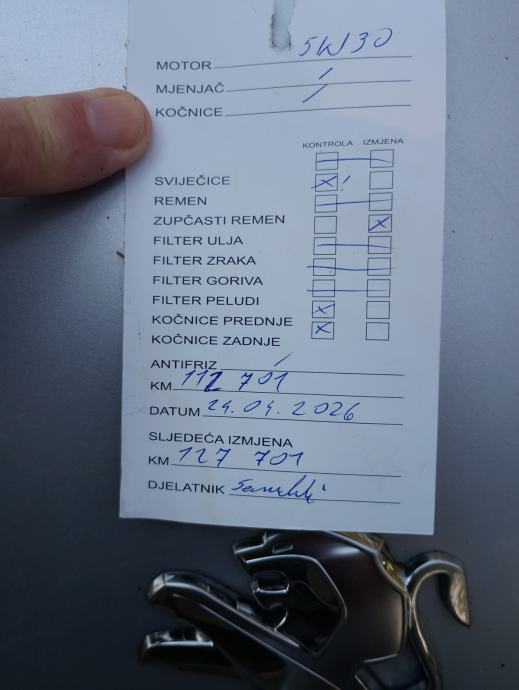 MOTOR 5W30
MJENJAČ /
KOČNICE /
KONTROLA IZMJENA
SVIJEĆICE
REMEN
ZUPČASTI REMEN
FILTER ULJA
FILTER ZRAKA
FILTER GORIVA
FILTER PELUDI
KOČNICE PREDNJE
KOČNICE ZADNJE
ANTIFRIZ /
KM 112 701
DATUM 24.04.2026
SLJEDEĆA IZMJENA
KM 127 701
DJELATNIK